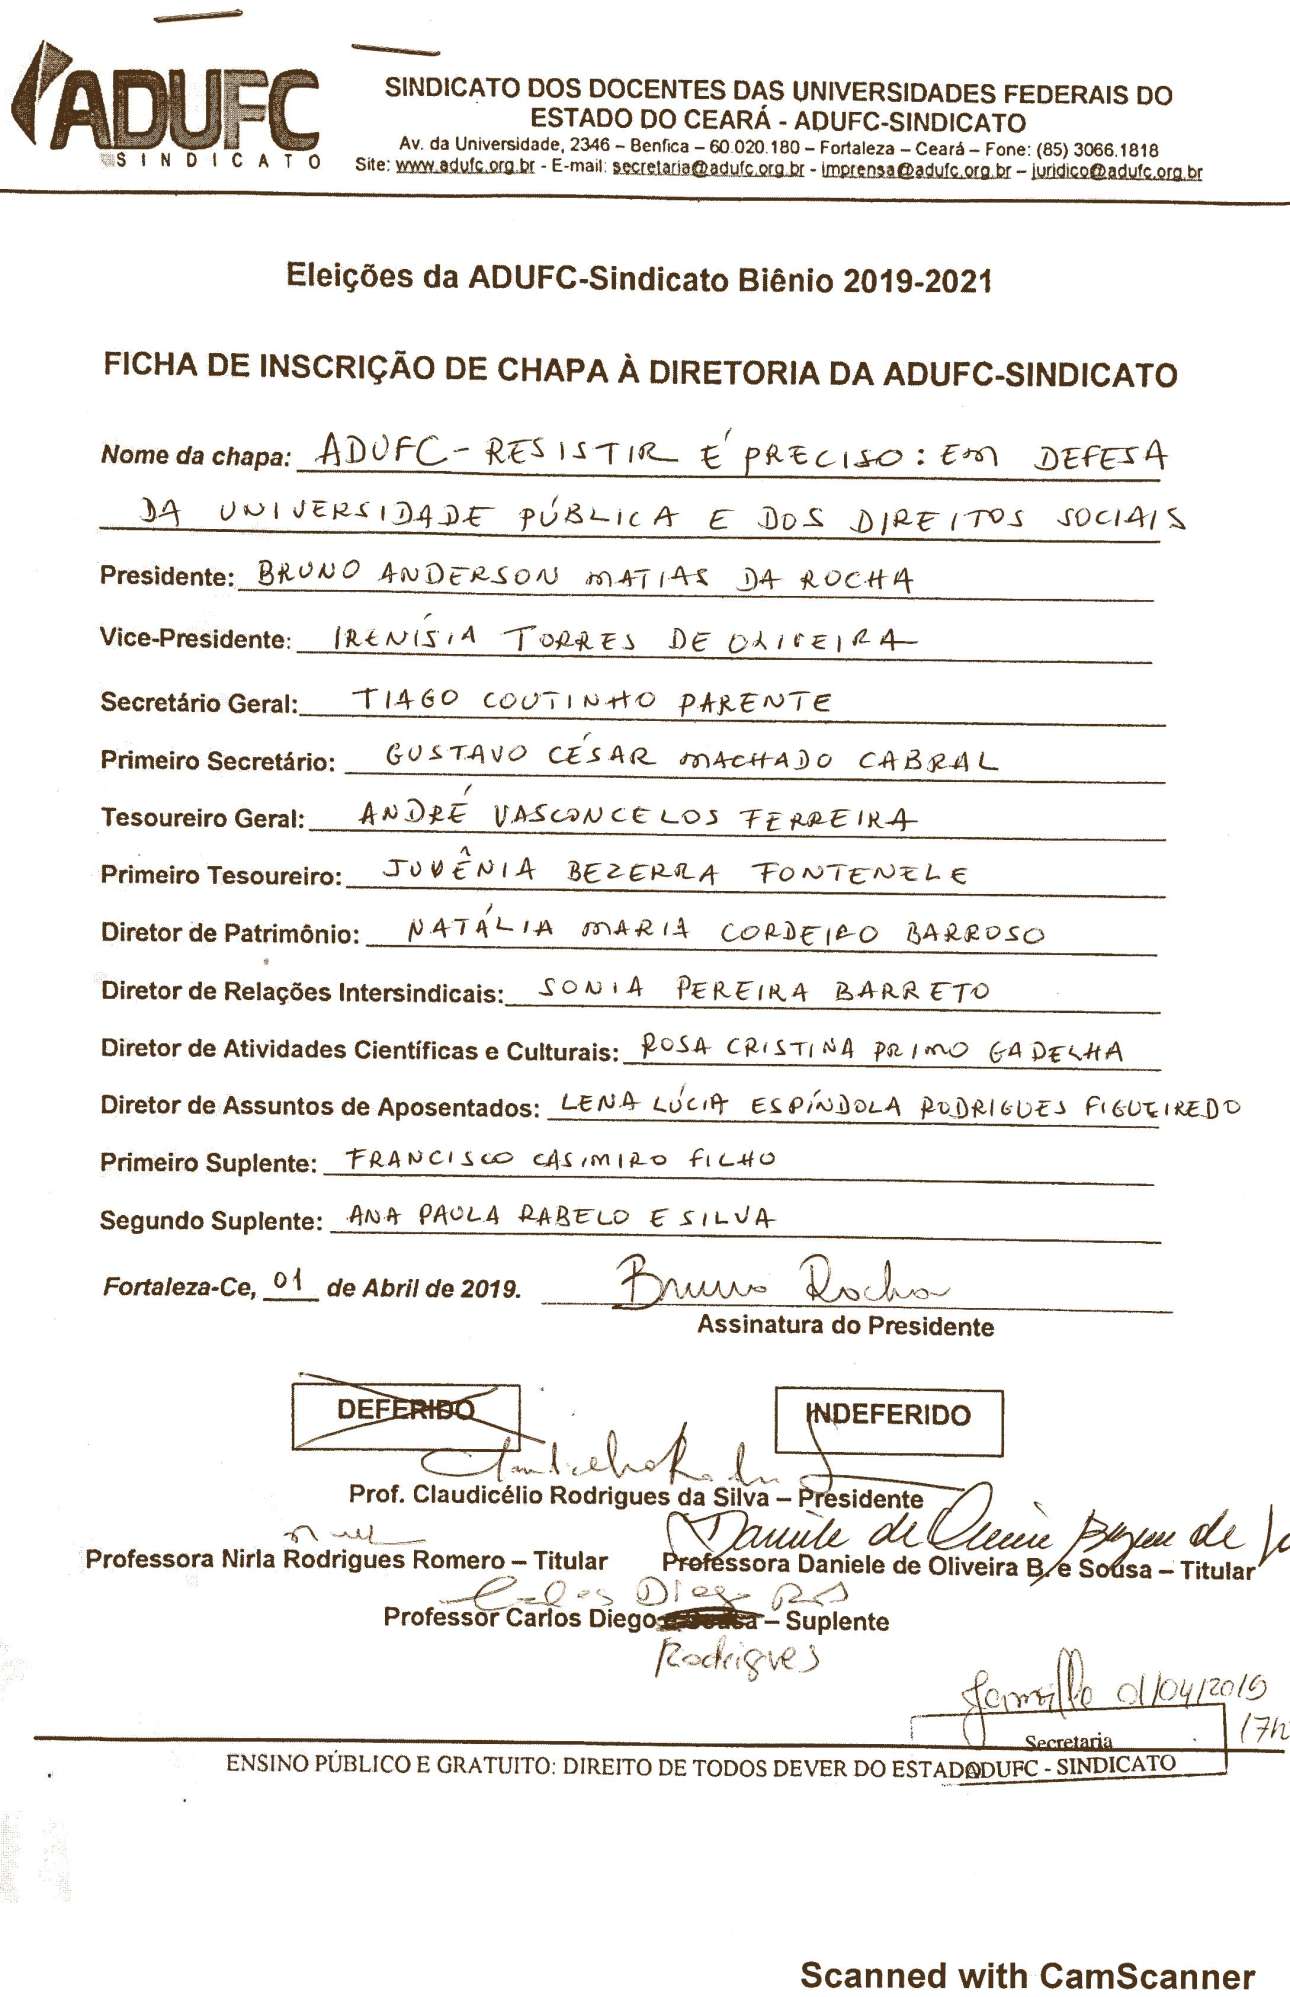 ADUFC
SINDICATO
SINDICATO DOS DOCENTES DAS UNIVERSIDADES FEDERAIS DO
ESTADO DO CEARÁ - ADUFC-SINDICATO
Av. da Universidade, 2346 – Benfica – 60.020.180 – Fortaleza – Ceará – Fone: (85) 3066.1818
Site: www.adufc.org.br - E-mail: secretaria@adufc.org.br - imprensa@adufc.org.br – juridico@adufc.org.br
Eleições da ADUFC-Sindicato Biênio 2019-2021
FICHA DE INSCRIÇÃO DE CHAPA À DIRETORIA DA ADUFC-SINDICATO
Nome da chapa: ADUFC - RESISTIR É PRECISO: EM DEFESA
DA UNIVERSIDADE PÚBLICA E DOS DIREITOS SOCIAIS
Presidente: BRUNO ANDERSON MATIAS DA ROCHA
Vice-Presidente: IRENÍSIA TORRES DE OLIVEIRA
Secretário Geral: TIAGO COUTINHO PARENTE
Primeiro Secretário: GUSTAVO CÉSAR MACHADO CABRAL
Tesoureiro Geral: ANDRÉ VASCONCELOS FERREIRA
Primeiro Tesoureiro: JUVÊNIA BEZERRA FONTENELE
Diretor de Patrimônio: NATÁLIA MARIA CORDEIRO BARROSO
Diretor de Relações Intersindicais: SONIA PEREIRA BARRETO
Diretor de Atividades Científicas e Culturais: ROSA CRISTINA PRIMO GADELHA
Diretor de Assuntos de Aposentados: LENA LÚCIA ESPÍNDOLA RODRIGUES FIGUEIREDO
Primeiro Suplente: FRANCISCO CASIMIRO FILHO
Segundo Suplente: ANA PAULA RABELO E SILVA
Fortaleza-Ce, 01 de Abril de 2019. Bruno Rocha
Assinatura do Presidente
DEFERIDO INDEFERIDO
Prof. Claudicélio Rodrigues da Silva – Presidente
Daniele de Oliveira Bezerra de
Professora Nirla Rodrigues Romero – Titular Professora Daniele de Oliveira B. e Sousa – Titular
Carlos Diego
Professor Carlos Diego e Sousa – Suplente
Rodrigues
01/04/2019
17h
Secretaria
ENSINO PÚBLICO E GRATUITO: DIREITO DE TODOS DEVER DO ESTADO ADUFC - SINDICATO
Scanned with CamScanner